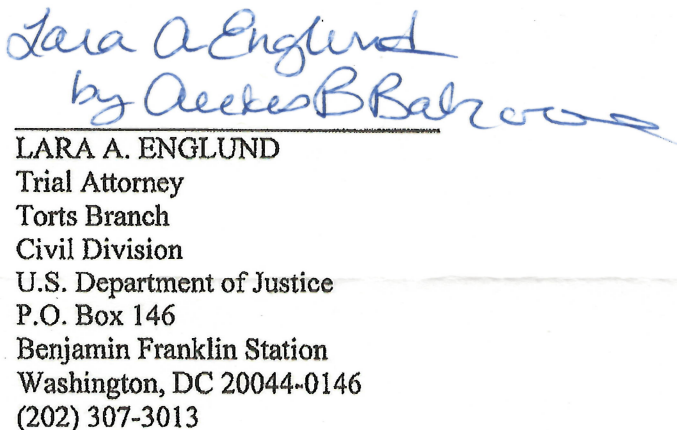 Lara A Englund
by B
LARA A. ENGLUND
Trial Attorney
Torts Branch
Civil Division
U.S. Department of Justice
P.O. Box 146
Benjamin Franklin Station
Washington, DC 20044-0146
(202) 307-3013